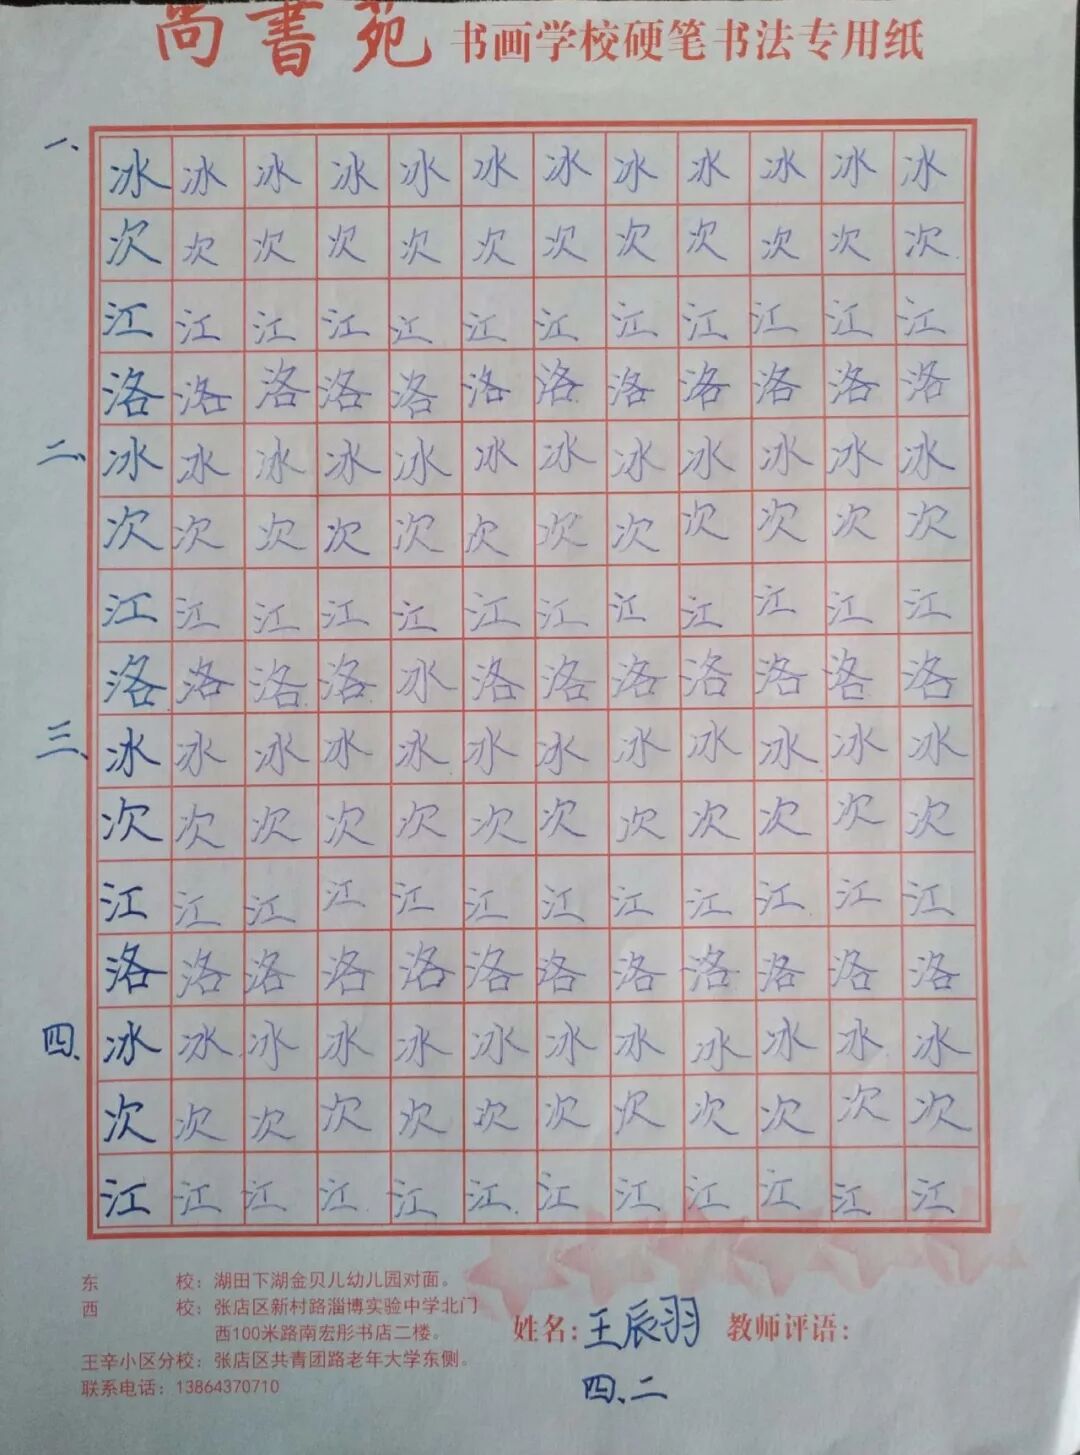 尚書苑 书画学校硬笔书法专用纸
一、冰冰冰冰冰冰冰冰冰冰冰冰
次次次次次次次次次次次次
江江江江江江江江江江江江
洛洛洛洛洛洛洛洛洛洛洛洛
二、冰冰冰冰冰冰冰冰冰冰冰冰
次次次次次次次次次次次次
江江江江江江江江江江江江
洛洛洛洛冰洛洛洛洛洛洛洛
三、冰冰冰冰冰冰冰冰冰冰冰冰
次次次次次次次次次次次次
江江江江江江江江江江江江
洛洛洛洛洛洛洛洛洛洛洛洛
四、冰冰冰冰冰冰冰冰冰冰冰冰
次次次次次次次次次次次次
江江江江江江江江江江江江
东校：湖田下湖金贝儿幼儿园对面。
西校：张店区新村路淄博实验中学北门
西100米路南宏彤书店二楼。
王辛小区分校：张店区共青团路老年大学东侧。
联系电话：13864370710
姓名：王辰羽 教师评语：
四、二